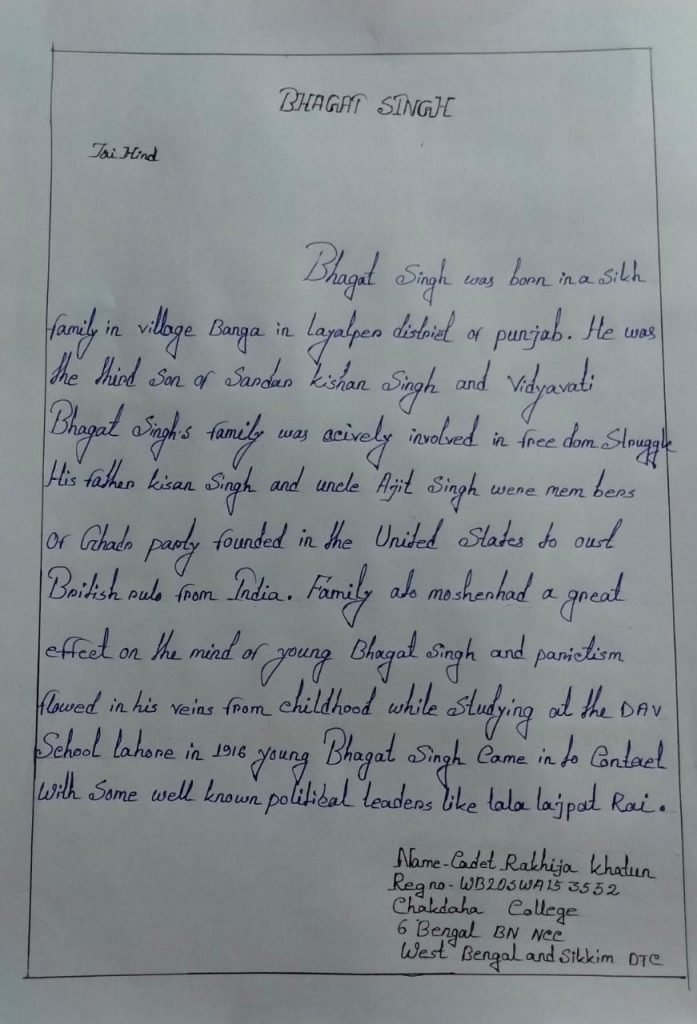 BHAGAT SINGH
Jai Hind
Bhagat Singh was born in a Sikh
family in village Banga in Layalper district of punjab. He was
the third Son of Sandar Kishan Singh and Vidyavati
Bhagat Singh's family was acively involved in free dom Struggle
His father kisan Singh and uncle Ajit Singh were mem bers
of Ghadr party founded in the United States to oust
British rule from India. Family ato moshenhad a great
effect on the mind of young Bhagat Singh and panictism
flowed in his veins from childhood while Studying at the DAV
School lahore in 1916 young Bhagat Singh Came in to Contact
With Some well known political leaders like lala lajpat Rai.
Name-Cadet Rakhija Khatun
Reg no- WB20SWA153532
Chakdaha College
6 Bengal BN NCC
West Bengal and Sikkim DTE